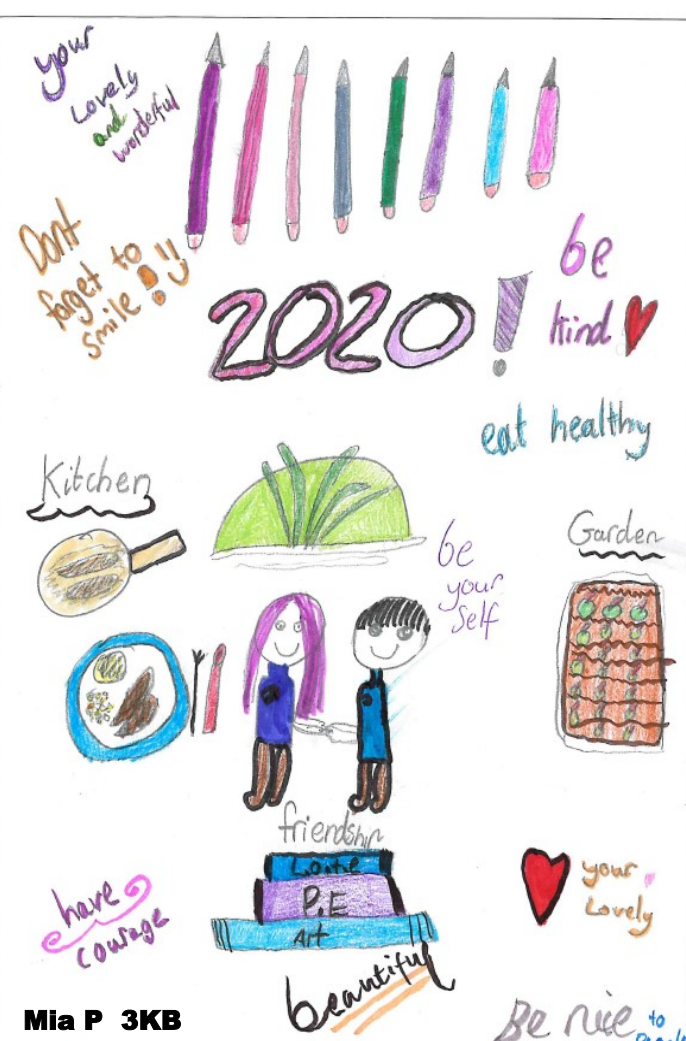 your
Lovely
and
wonderful
Dont
forget to
smile !
2020!
be
kind
eat healthy
Kitchen
Garden
be
your
self
friendship
P.E
Art
have
courage
your
Lovely
beautiful
Be nice to
Mia P 3KB